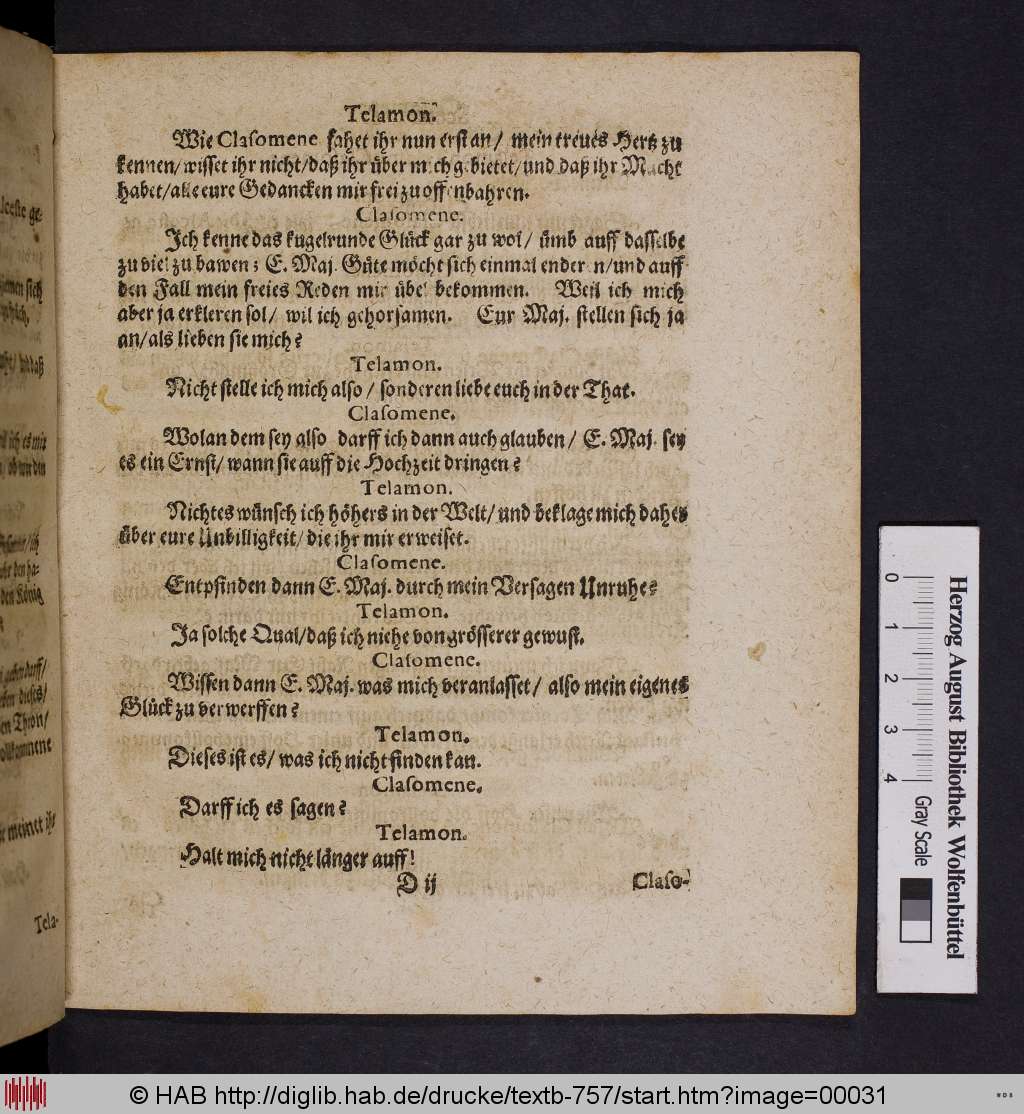 Telamon.
Wie Clasomene fahet ihr nun erst an/ mein treues Hertz zu
kennen/ wisset ihr nicht/ daß ihr über mich gebietet/ und daß ihr Macht
habet/ alle eure Gedancken mir frei zu offenbahren.
Clasomene.
Ich kenne das kugelrunde Glück gar zu wol/ ümb auff dasselbe
zu viel zu bawen; E. Maj. Güte möcht sich einmal enderen/ und auff
den Fall mein freies Reden mir übel bekommen. Weil ich mich
aber ja erkleren sol/ wil ich gehorsamen. Eur Maj. stellen sich ja
an/ als lieben sie mich?
Telamon.
Nicht stelle ich mich also/ sonderen liebe euch in der That.
Clasomene.
Wolan dem sey also darff ich dann auch glauben/ E. Maj. sey
es ein Ernst/ wann sie auff die Hochzeit dringen?
Telamon.
Nichtes wünsch ich höhers in der Welt/ und beklage mich daher
über eure Unbilligkeit/ die ihr mir erweiset.
Clasomene.
Entpfinden dann E. Maj. durch mein Versagen Unruhe?
Telamon.
Ja solche Qual/ daß ich niehe von grösserer gewust.
Clasomene.
Wissen dann E. Maj. was mich veranlasset/ also mein eigenes
Glück zu verwerffen?
Telamon.
Dieses ist es/ was ich nicht finden kan.
Clasomene.
Darff ich es sagen?
Telamon.
Halt mich nicht länger auff!
D ij
Claso-
Tela-
0 1 2 3 4
Gray Scale
Herzog August Bibliothek Wolfenbüttel
© HAB http://diglib.hab.de/drucke/textb-757/start.htm?image=00031